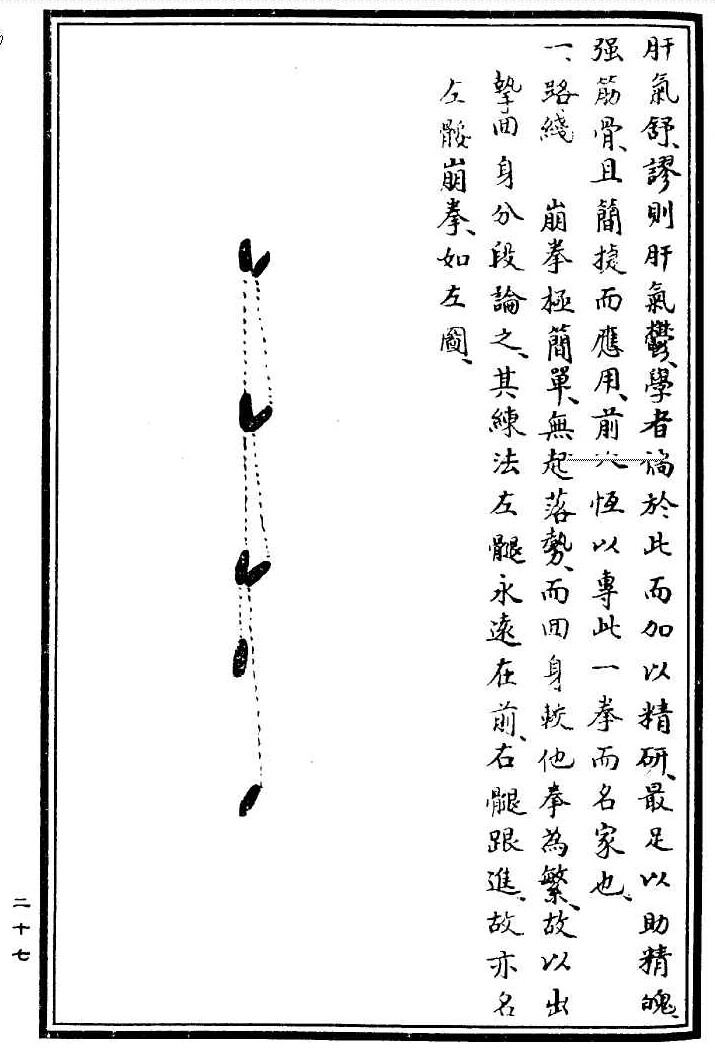 肝氣舒、謬則肝氣鬱、學者倘於此而加以精研、最足以助精魄、
强筋骨、且簡捷而應用、前人恆以專此一拳而名家也、
一、路綫 崩拳極簡單、無起落勢、而囬身較他拳為繁、故以出
勢囬身分段論之、其練法左腿永遠在前、右腿跟進、故亦名
左腿崩拳、如左圖、
二十七